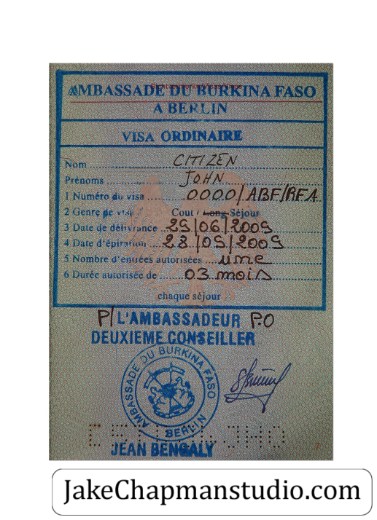 AMBASSADE DU BURKINA FASO
A BERLIN
VISA ORDINAIRE
Nom CITIZEN
Prénoms JOHN
1 Numéro du visa 0000/ABF/RFA
2 Genre de visa Court / Long Séjour
3 Date de délivrance 29/06/2009
4 Date d'éxpiration 28/09/2009
5 Nombre d'entrées autorisées une
6 Durée autorisée de 03 mois
chaque séjour
P/L'AMBASSADEUR P.O
DEUXIEME CONSEILLER
AMBASSADE DU BURKINA FASO
BERLIN
JEAN BENGALY
JakeChapmanstudio.com